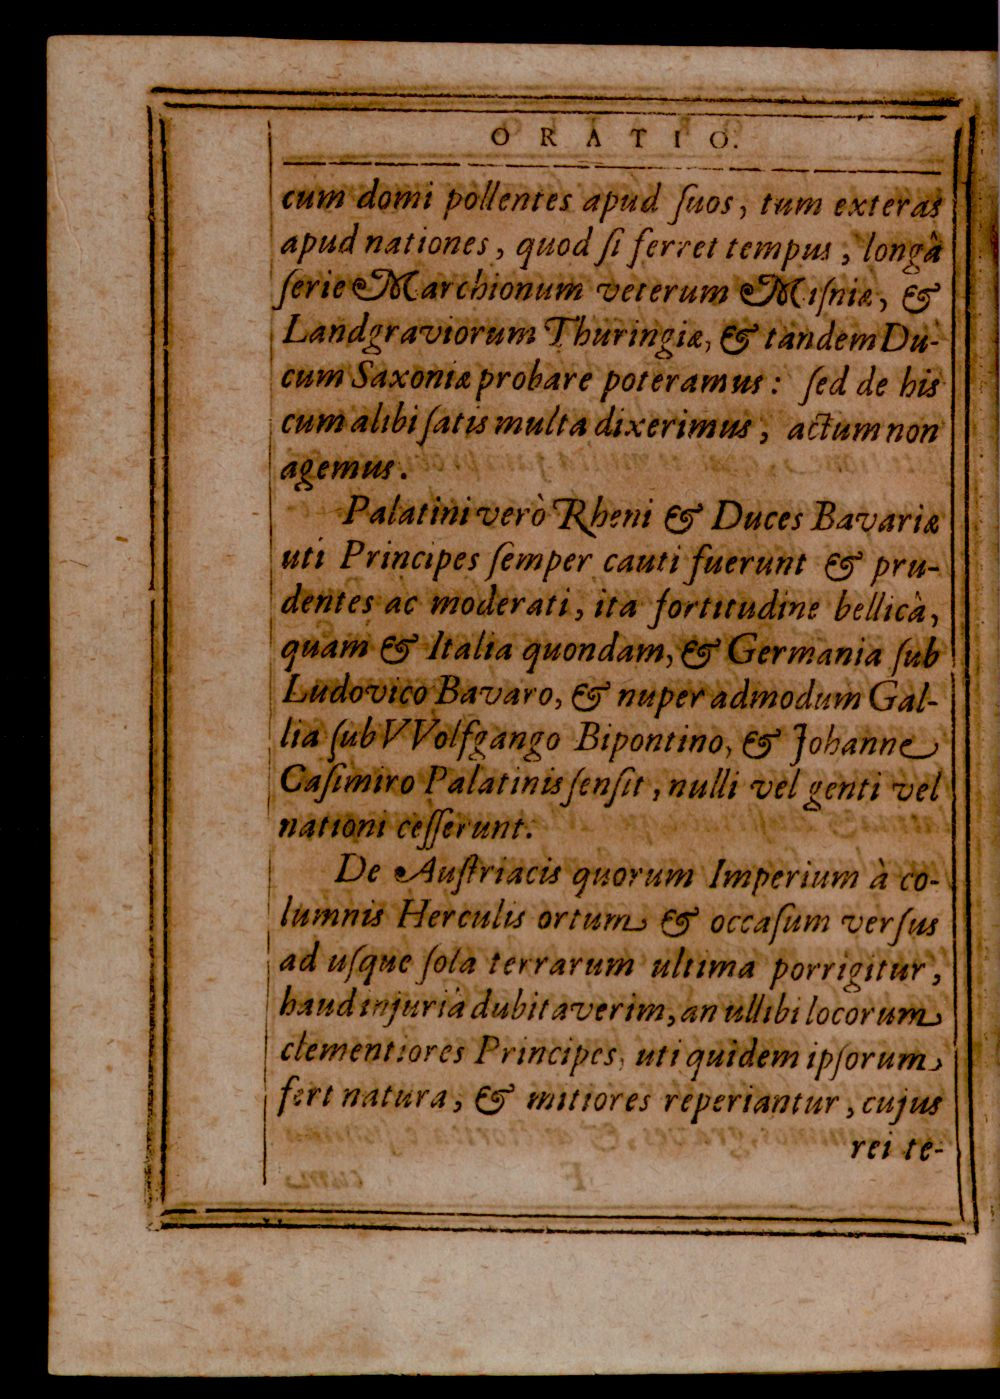 ORATIO.
cum domi pollentes apud ſuos, tum exteras
apud nationes, quod ſi ferret tempus, longâ
ſerie Marchionum veterum Miſniæ, &
Landgraviorum Thuringiæ, & tandem Du-
cum Saxoniæ probare poteramus: ſed de his
cum alibi ſatis multa dixerimus, actum non
agemus.
Palatini verò Rheni & Duces Bavariæ
uti Principes ſemper cauti fuerunt & pru-
dentes ac moderati, ita fortitudine bellicà,
quam & Italia quondam, & Germania ſub
Ludovico Bavaro, & nuper admodum Gal-
lia ſub VVolfgango Bipontino, & Johanne
Caſimiro Palatinis ſenſit, nulli vel genti vel
nationi ceſſerunt.
De Auſtriacis quorum Imperium à co-
lumnis Herculis ortum & occaſum verſus
ad uſque ſola terrarum ultima porrigitur,
haud injuriâ dubitaverim, an ullibi locorum
clementiores Principes, uti quidem ipſorum
fert natura, & mitiores reperiantur, cujus
rei te-